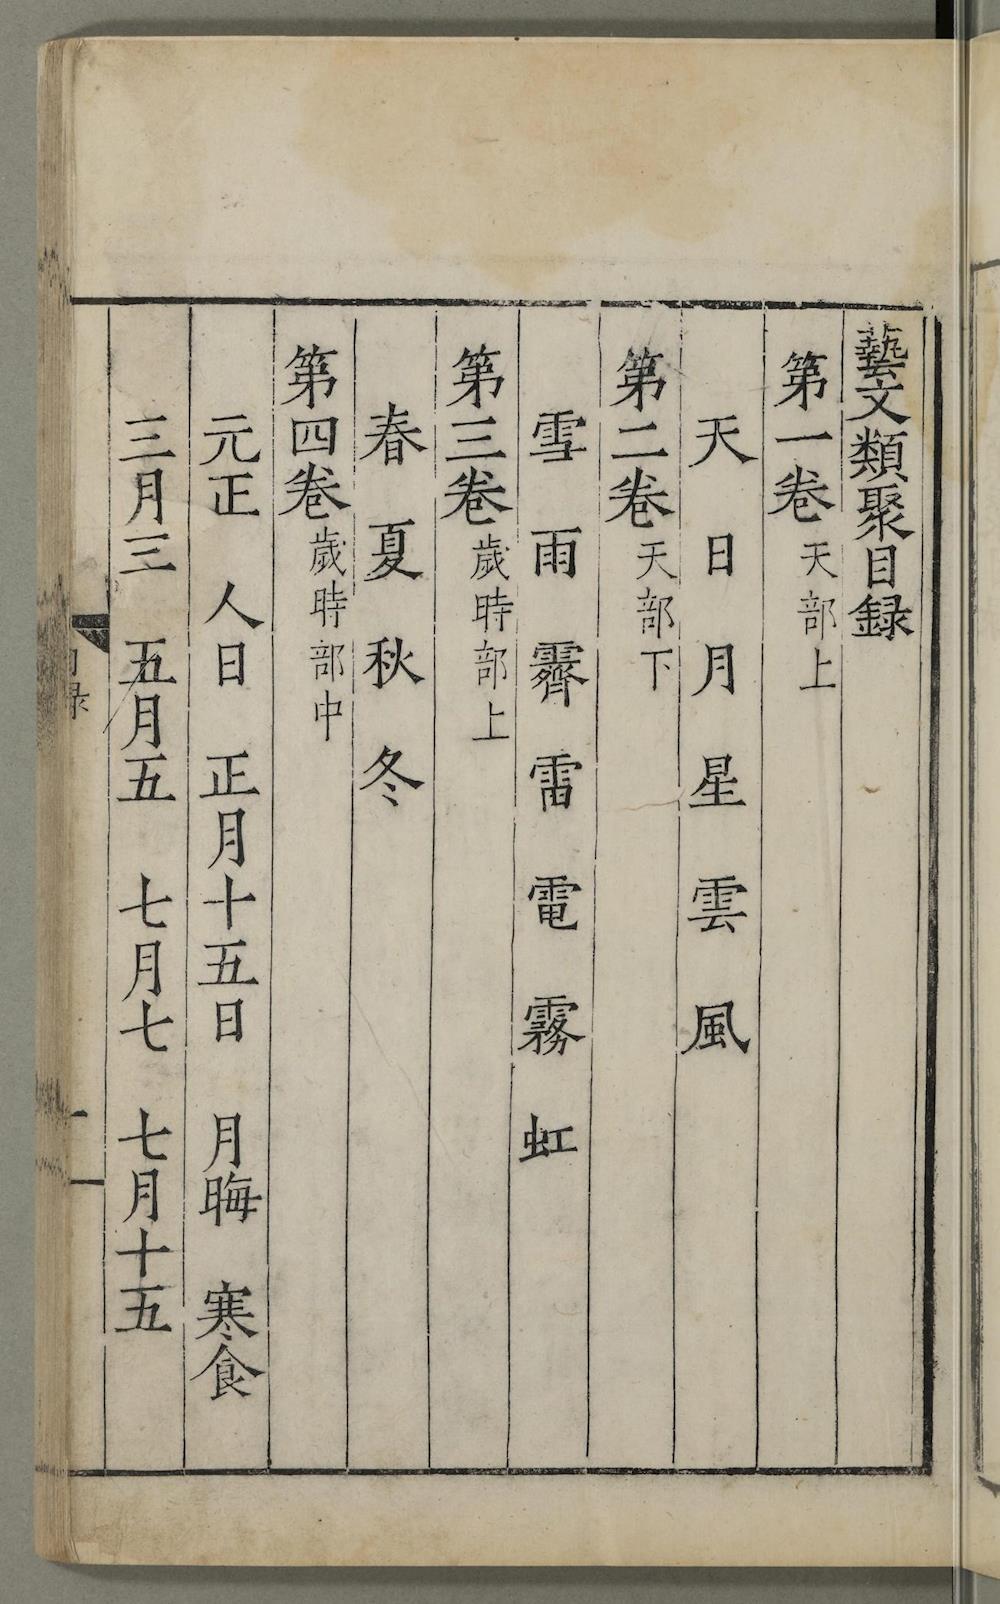 藝文類聚目録
第一卷天部上
天 日 月 星 雲 風
第二卷天部下
雪 雨 霽 雷 電 霧 虹
第三卷歲時部上
春 夏 秋 冬
第四卷歲時部中
元正 人日 正月十五日 月晦 寒食
三月三 五月五 七月七 七月十五